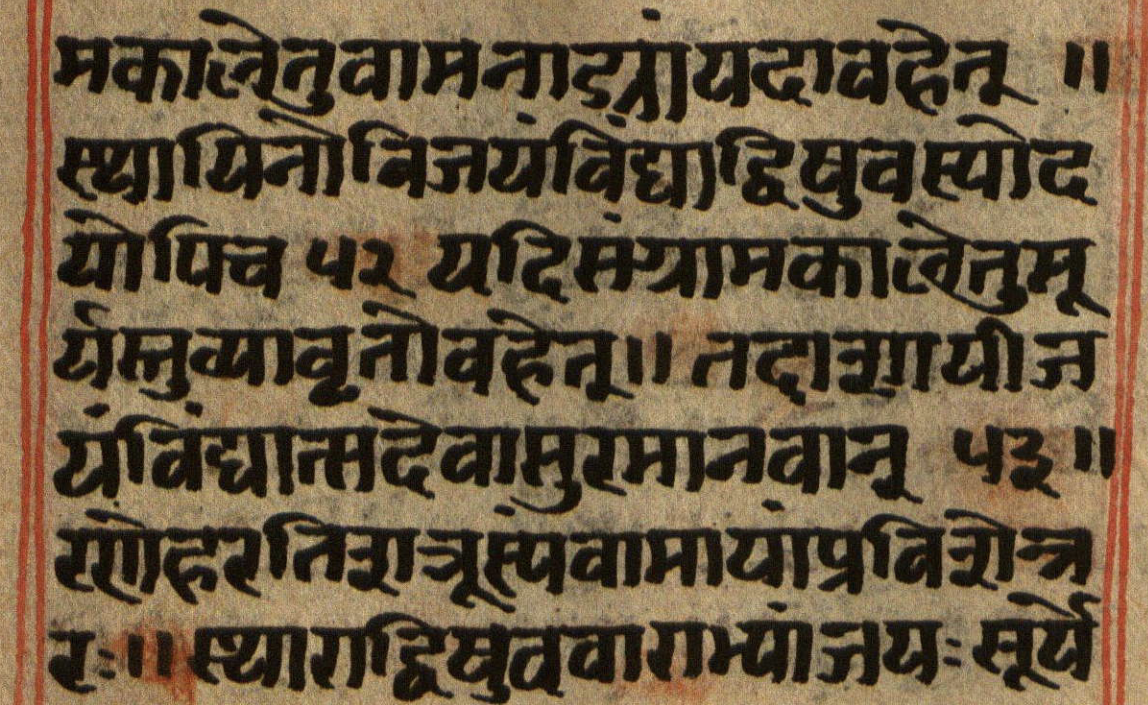 मकालेतुवामनाड्यांयदावहेत् ॥
स्थायिनोविजयंविंद्याद्विषुवस्योद
योपिच ५२ यदिसंग्रामकालेतुसू
र्यस्तुव्यावृतोवहेत् ॥ तदाशायीज
यंविंद्यात्सदेवासुरमानवान् ५३ ॥
रणेहरतिशत्रूस्पंवामायांप्रविशेन्न
रः ॥ स्थाराद्विषुववाराभ्यांजयः सूर्ये